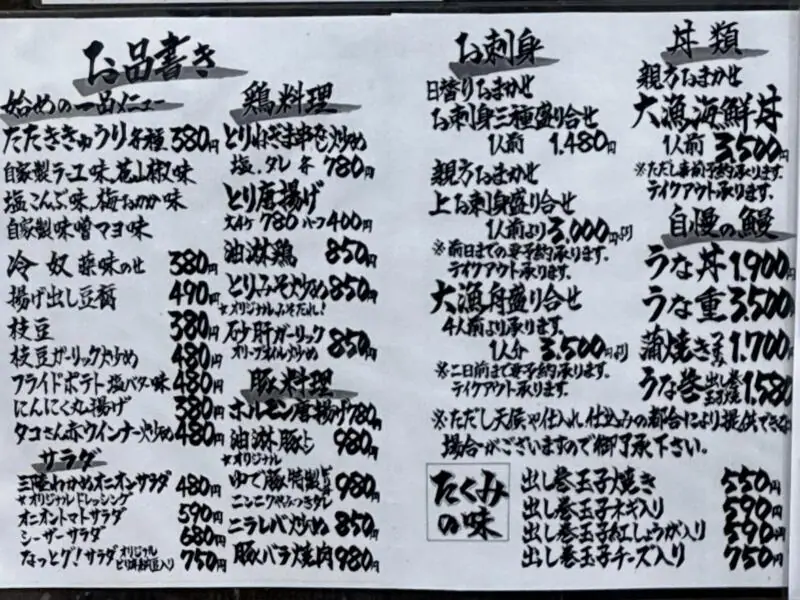 お品書き
始めの一品メニュー
たたききゅうり各種 380円
自家製ラー油味、花山椒味
塩こんぶ味、梅おかか味
自家製味噌マヨ味
冷奴 薬味のせ 380円
揚げ出し豆腐 490円
枝豆 380円
枝豆ガーリック炒め 480円
フライドポテト塩バター味 480円
にんにく丸揚げ 380円
タコさん赤ウインナー炒め 480円
サラダ
三陸わかめオニオンサラダ 480円
*オリジナルドレッシング
オニオントマトサラダ 590円
シーザーサラダ 680円
なっとグ!サラダ オリジナル 750円
鶏料理
とりねぎま串 炒め
塩、タレ 各 780円
とり唐揚げ
大イケ 780 ハーフ 400円
油淋鶏 850円
とりみそ炒め 850円
*オリジナルみそだれ!
砂肝ガーリック
オリーブオイル炒め 850円
豚料理
ホルモン唐揚げ 780円
油淋豚 980円
*オリジナル
ゆで豚特製 980円
ニンニクやみつきタレ
ニラレバ炒め 850円
豚バラ焼肉 980円
お刺身
日替りおまかせ
お刺身三種盛り合せ
1人前 1.480円
親方おまかせ
上お刺身盛り合せ
1人前より 3,000円より
※前日までの要予約承ります。
テイクアウト承ります。
大漁舟盛り合せ
4人前より承ります。
1人分 3.500円より
※二日前まで要予約承ります。
テイクアウト承ります。
丼類
親方おまかせ
大漁海鮮丼
1人前 3,500円
※ただし事前予約承ります。
テイクアウト承ります。
自慢の鰻
うな丼 1.900円
うな重 3,500円
蒲焼き 1.700円
うな巻 出し巻玉子焼 1.580円
※ただし天候や仕入れ、仕込みの都合により提供できない
場合がございますので御了承下さい。
たくみの味
出し巻玉子焼き 550円
出し巻玉子ネギ入り 590円
出し巻玉子紅しょうが入り 590円
出し巻玉子チーズ入り 750円